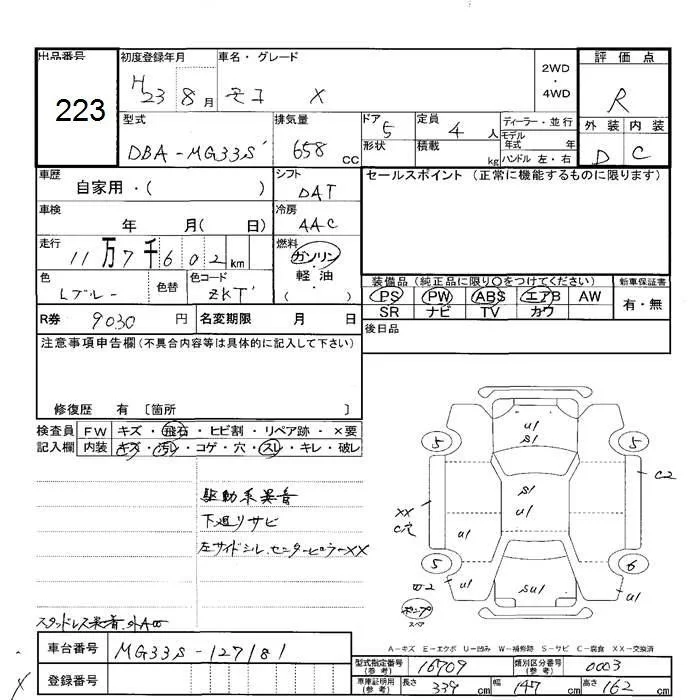 出品番号 初度登録年月 車名・グレード 評価点
223
H23 8月 モコ X
2WD
・
4WD
R
型式 排気量 ドア 定員 ディーラー・並行 外装 内装
DBA-MG33S 658 cc 5 4人
モデル年式 年
形状 積載 kg ハンドル 左・右
D C
車歴 シフト セールスポイント(正常に機能するものに限ります)
自家用・( ) DAT
車検 冷房
年 月( 日) AAC
走行 燃料
11万7千602km ガソリン
・
軽油
( )
色 色替 色コード
Lブルー ZKT
装備品(純正品に限り○をつけてください) 新車保証書
PS PW ABS エアB AW 有・無
SR ナビ TV カワ
R券 9030円 名変期限 月 日
後日品
注意事項申告欄(不具合内容等は具体的に記入して下さい)
修復歴 有 〔箇所 〕
検査員 FW キズ・飛石・ヒビ割・リペア跡・×要
記入欄 内装 キズ・汚レ・コゲ・穴・スレ・キレ・破レ
駆動系異音
下廻リサビ
左サイドシル、センターピラーXX
スタッドレス
U1
S1
5 5
C2
S1
U1
XX
C穴
U1
5 6
U1 SU1 U1
車台番号 MG33S-127181
登録番号
A-キズ E-エクボ U-凹み W-補修跡 S-サビ C-腐食 XX-交換済
型式指定番号(参考) 16709 類別区分番号(参考) 0003
車庫証明用(参考) 長さ 339cm 幅 147cm 高さ 162cm